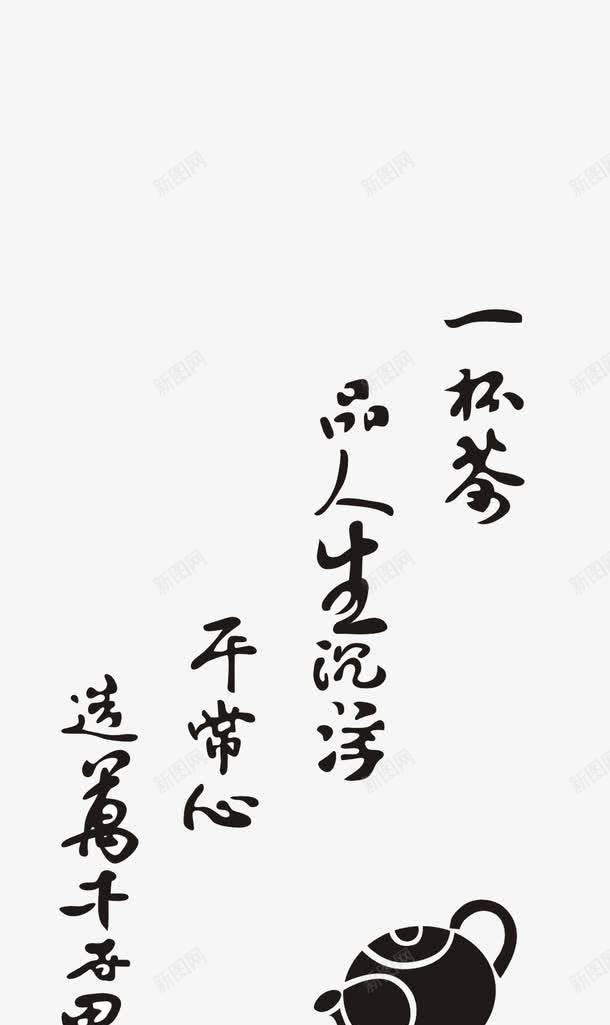 一杯茶
品人生沉浮
平常心
造萬千世
新图网